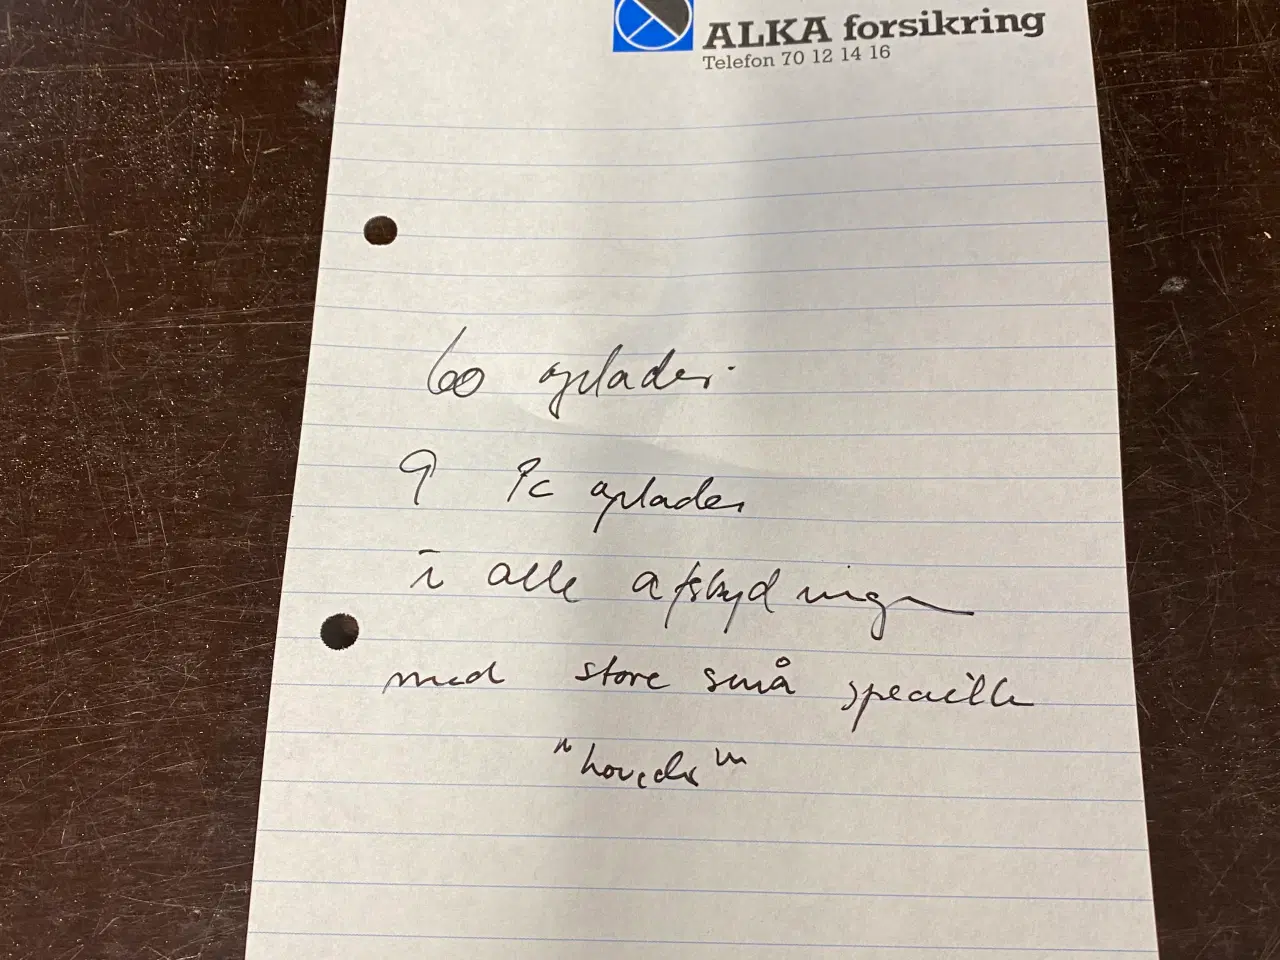 ALKA forsikring
Telefon 70 12 14 16
60 oplader.
9 Pc oplader
i alle afskydninger
med store små specielle
"hoveder"